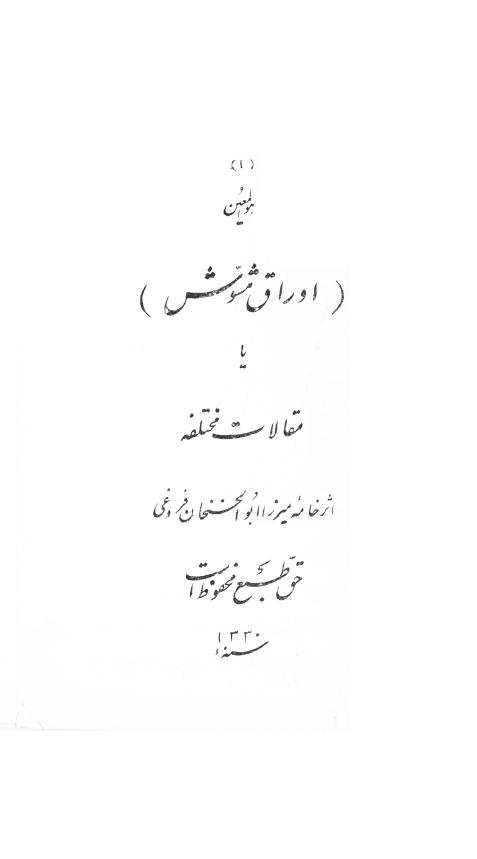 (۱)
هوالمعین
( اوراق مشوّش )
یا
مقالات مختلفه
اثر خامهٔ میرزا ابوالحسنخان فروغی
حقّ طبع محفوظ است
۱۳۳۰
سنهٔ